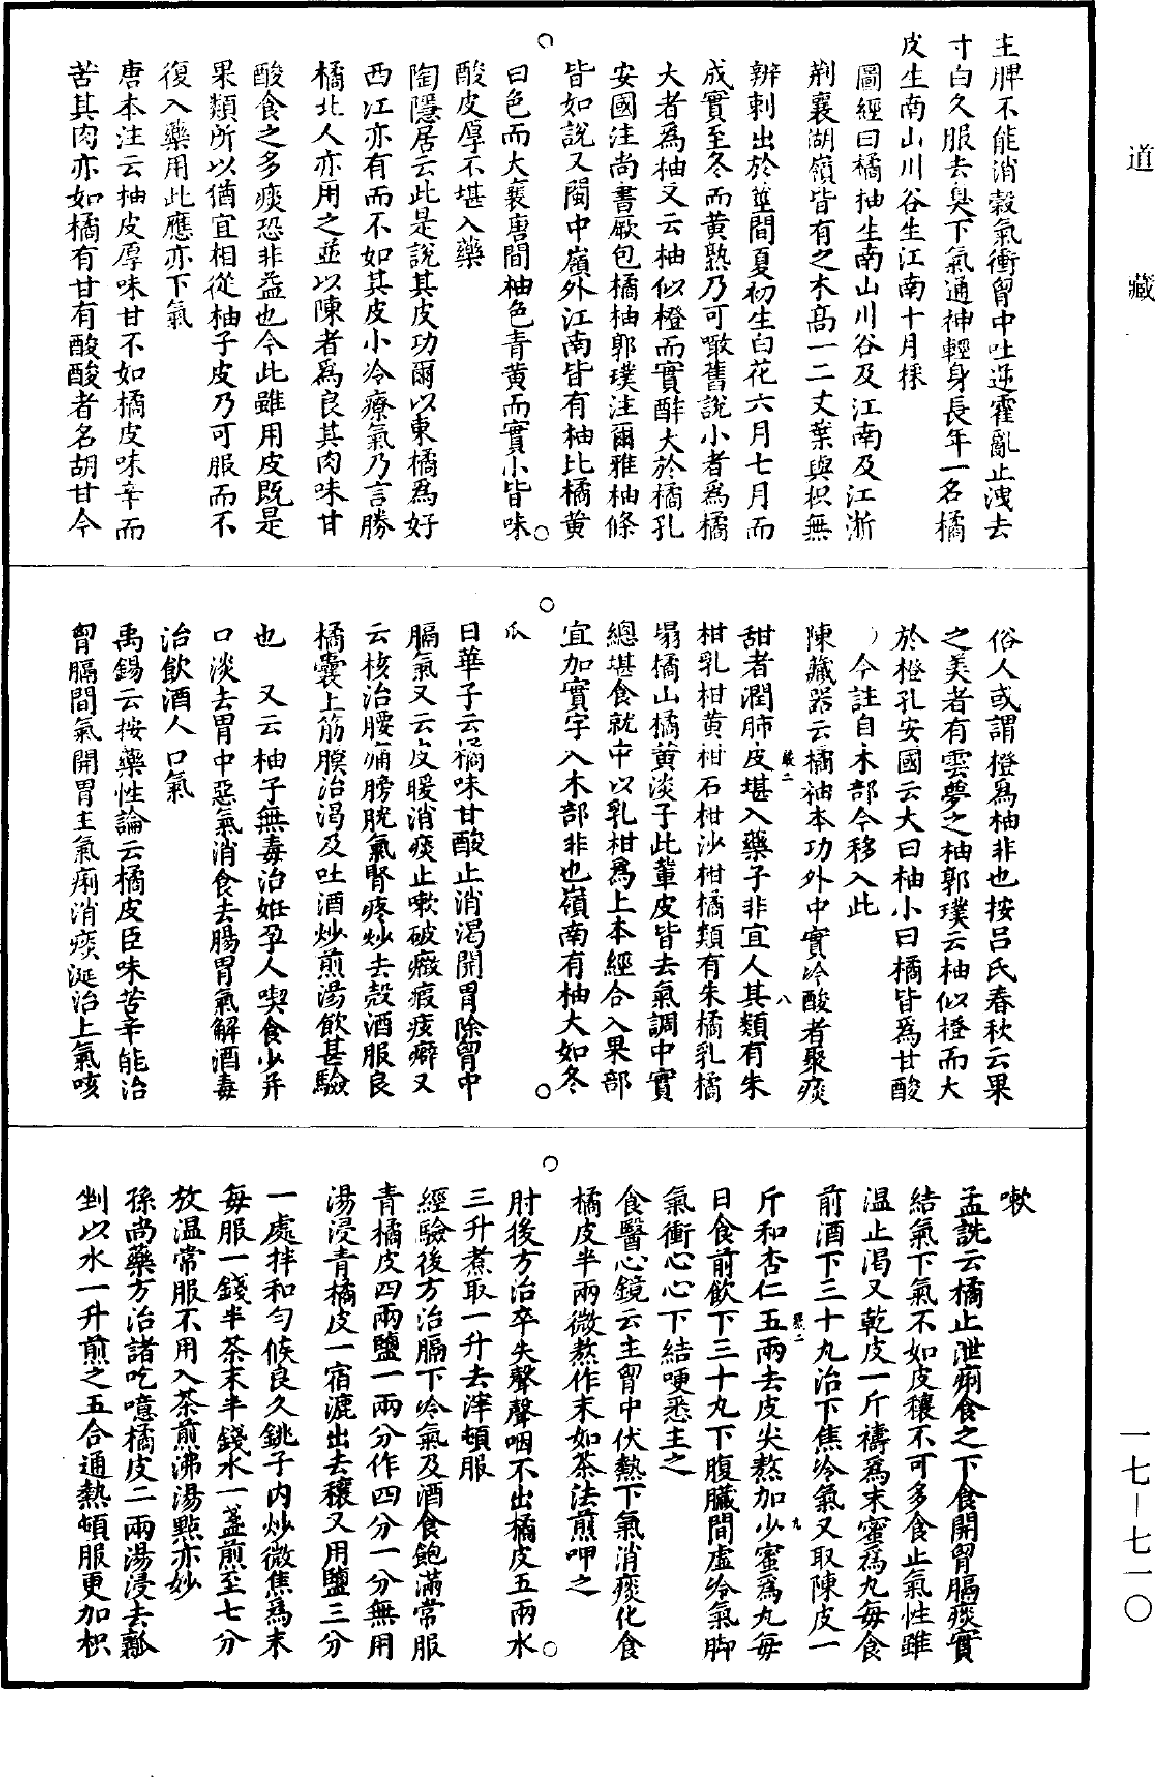 道藏
主脾不能消穀氣衝胷中吐逆霍亂止洩去
寸白久服去臭下氣通神輕身長年一名橘
皮生南山川谷生江南十月採
圖經曰橘柚生南山川谷及江南及江浙
荆襄湖嶺皆有之木高一二丈葉與枳無
辨刺出於莖間夏初生白花六月七月而
成實至冬而黃熟乃可噉舊說小者爲橘
大者爲柚又云柚似橙而實酢大於橘孔
安國注尚書厥包橘柚郭璞注爾雅柚條
皆如說又閩中嶺外江南皆有柚比橘黃
白色而大襄唐間柚色青黃而實小皆味
酸皮厚不堪入藥
陶隱居云此是說其皮功爾以東橘爲好
西江亦有而不如其皮小冷療氣乃言勝
橘北人亦用之並以陳者爲良其肉味甘
酸食之多痰恐非益也今此雖用皮既是
果類所以猶宜相從柚子皮乃可服而不
復入藥用此應亦下氣
唐本注云柚皮厚味甘不如橘皮味辛而
苦其肉亦如橘有甘有酸酸者名胡甘今
俗人或謂橙爲柚非也按呂氏春秋云果
之美者有雲夢之柚郭璞云柚似橙而大
於橙孔安國云大曰柚小曰橘皆爲甘酸
今註自木部今移入此
陳藏器云橘柚本功外中實冷酸者聚痰
甜者潤肺皮堪入藥子非宜人其類有朱
柑乳柑黃柑石柑沙柑橘類有朱橘乳橘
塌橘山橘黃淡子此輩皮皆去氣調中實
總堪食就中以乳柑爲上本經合入果部
宜加實字入木部非也嶺南有柚大如冬
瓜
日華子云橘味甘酸止消渴開胃除胷中
膈氣又云皮暖消痰止嗽破癥瘕痃癖又
云核治腰痛膀胱氣腎疼炒去殼酒服良
橘囊上筋膜治渴及吐酒炒煎湯飲甚驗
也　又云柚子無毒治妊孕人喫食少并
口淡去胃中惡氣消食去腸胃氣解酒毒
治飲酒人口氣
禹錫云按藥性論云橘皮臣味苦辛能治
胷膈間氣開胃主氣痢消痰涎治上氣咳
嗽
孟詵云橘止泄痢食之下食開胷膈痰實
結氣下氣不如皮穰不可多食止氣性雖
温止渴又乾皮一斤擣爲末蜜爲丸每食
前酒下三十丸治下焦冷氣又取陳皮一
斤和杏仁五兩去皮尖熬加少蜜爲丸每
日食前飲下三十丸下腹臟間虛冷氣脚
氣衝心心下結哽悉主之
食醫心鏡云主胷中伏熱下氣消痰化食
橘皮半兩微熬作末如茶法煎呷之
肘後方治卒失聲聲咽不出橘皮五兩水
三升煮取一升去滓頓服
經驗後方治膈下冷氣及酒食飽滿常服
青橘皮四兩鹽一兩分作四分一分無用
湯浸青橘皮一宿漉出去穰又用鹽三分
一處拌和勻候良久銚子内炒微焦爲末
每服一錢半茶末半錢水一盞煎至七分
放温常服不用入茶煎沸湯點亦妙
孫尚藥方治諸吃噫橘皮二兩湯浸去瓤
剉以水一升煎之五合通熱頓服更加枳
一七－七一〇